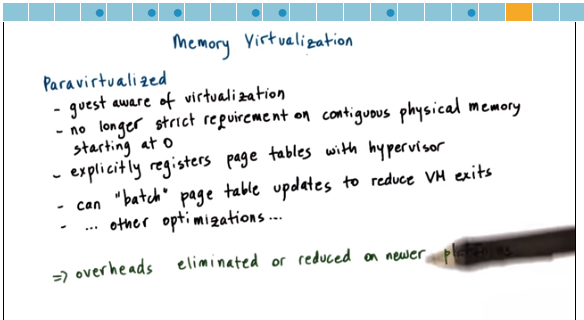 Memory Virtualization
Paravirtualized
- guest aware of virtualization
- no longer strict requirement on contiguous physical memory
starting at 0
- explicitly registers page tables with hypervisor
- can "batch" page table updates to reduce VM exits
- ... other optimizations ...
=> overheads eliminated or reduced on newer